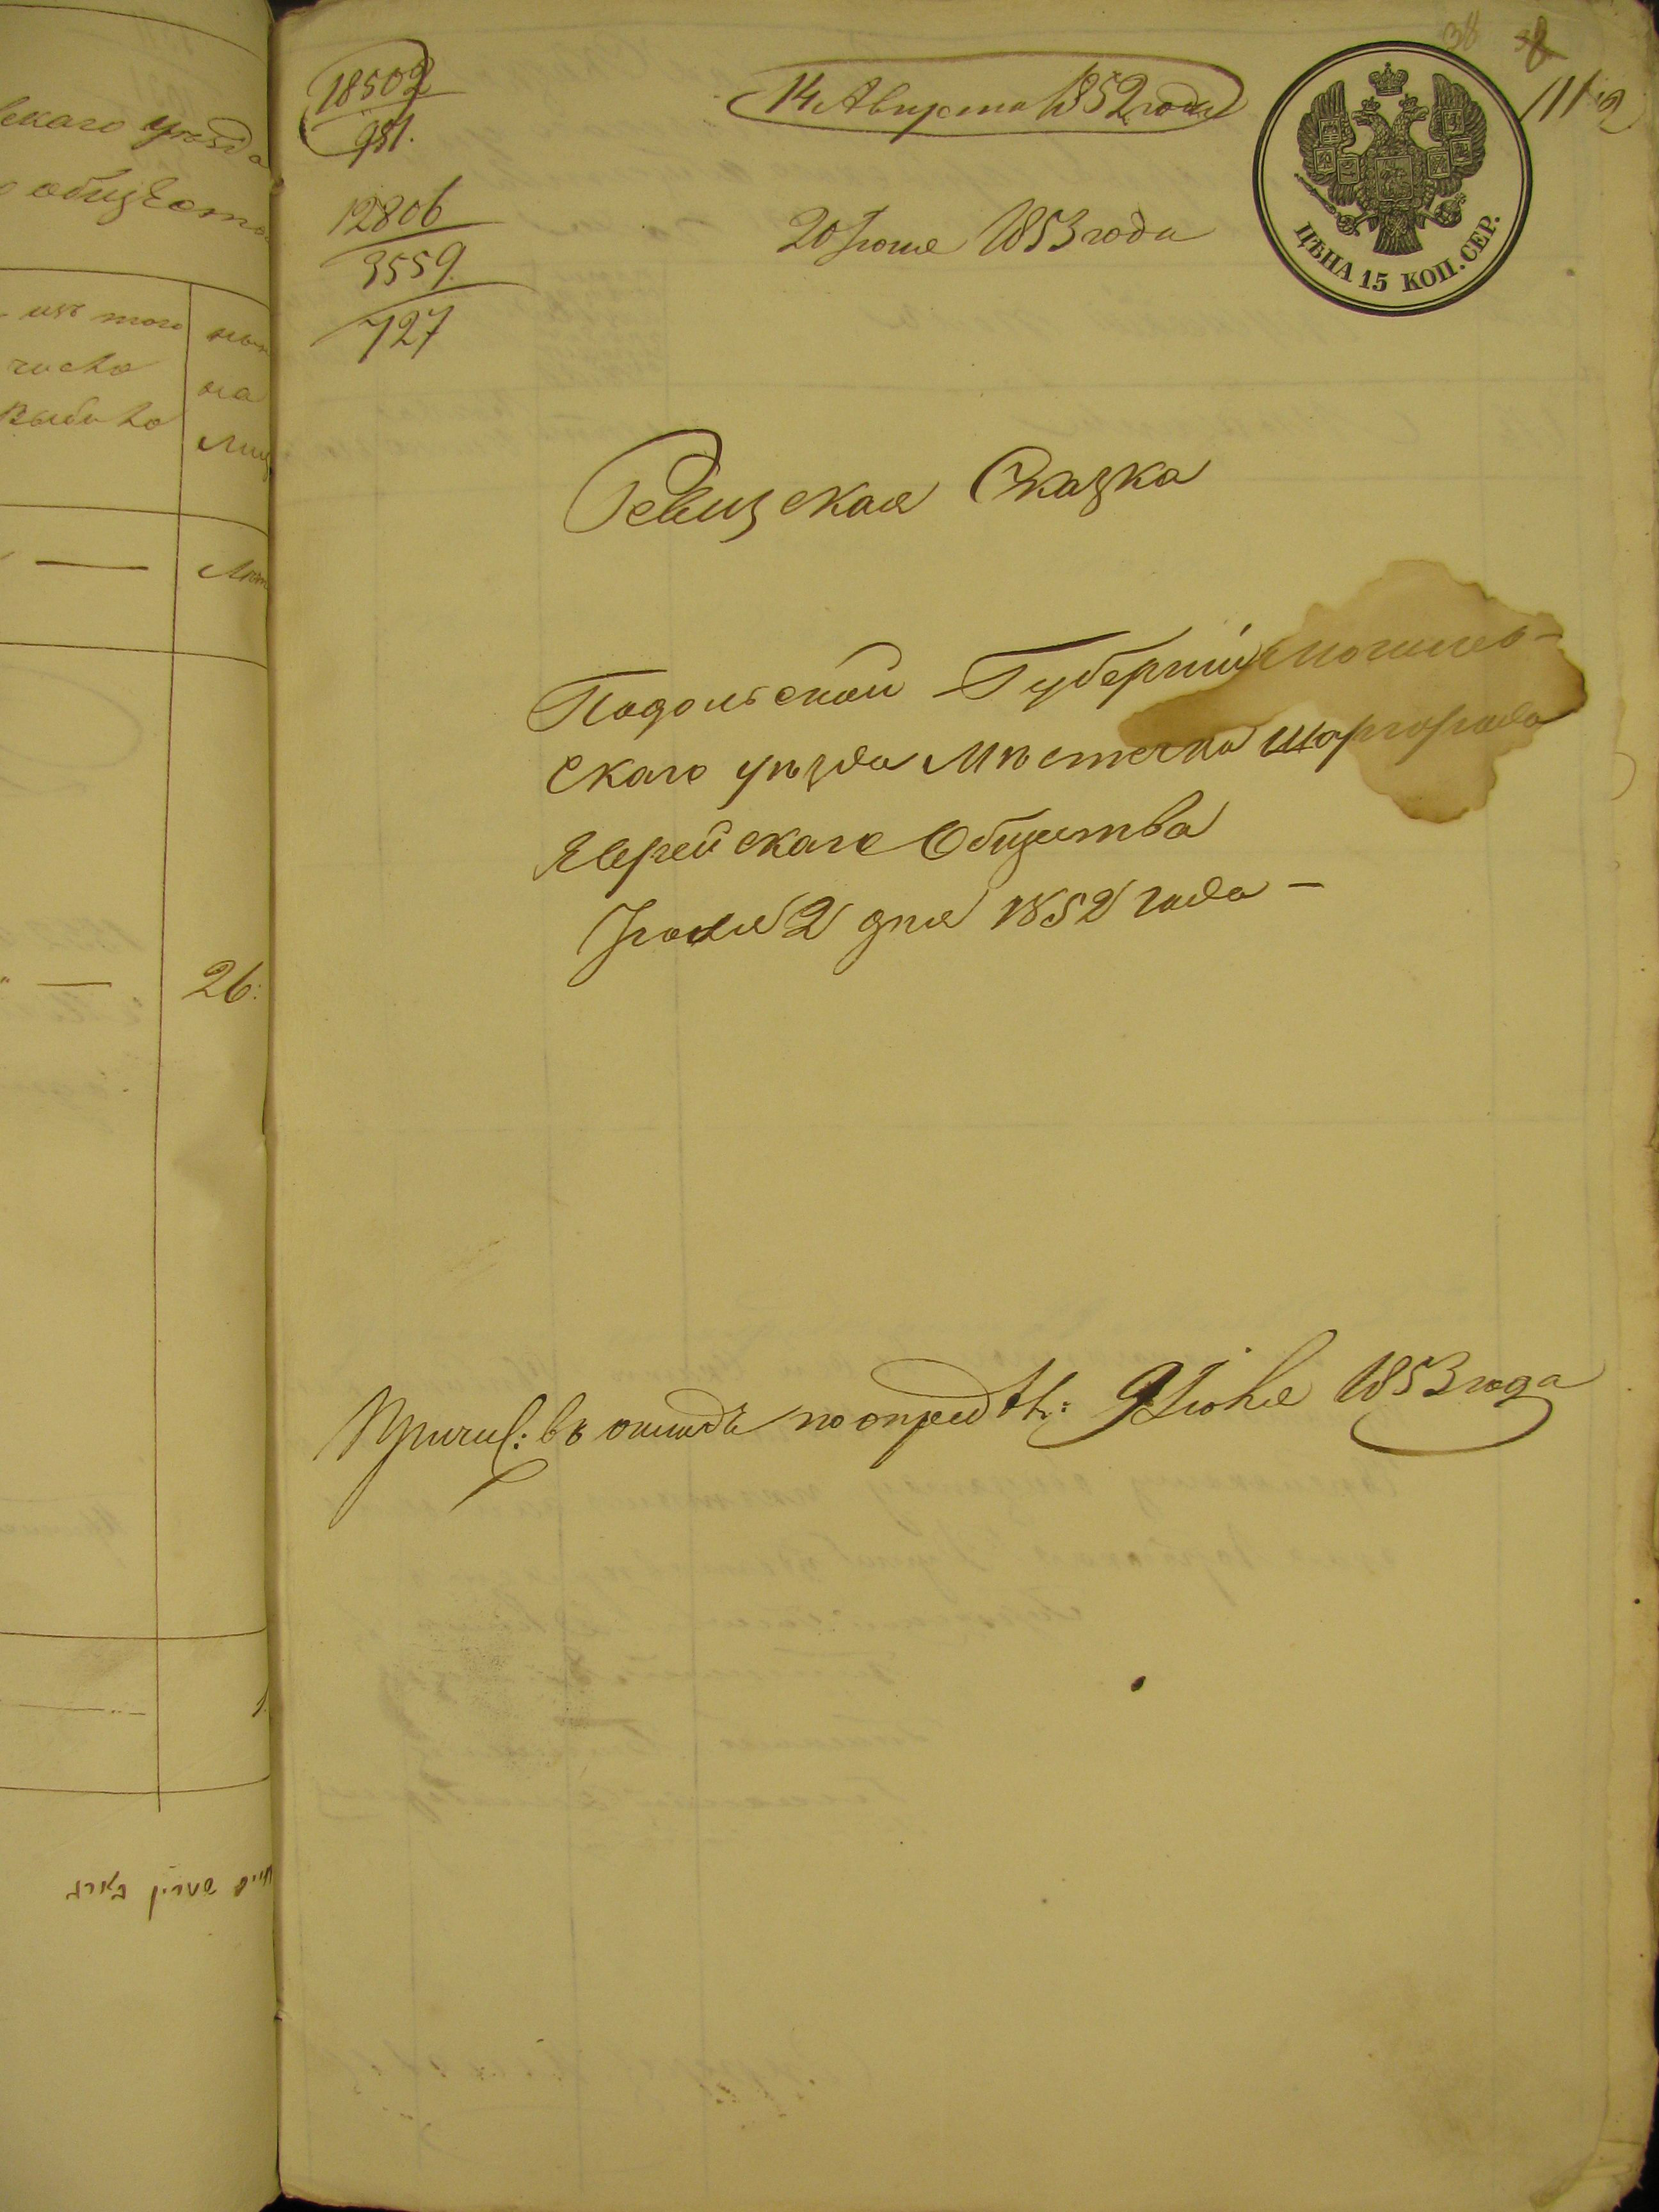 скаго уѣзда
общество
изъ того
число
выбыло
на
лиц
26:
18502
951.
12806
3559
727
14 Августа 1852 года
20 Іюня 1853 года
38
111
ЦѢНА 15 КОП. СЕР.
Ревизская Сказка
Подольской Губерніи Могилев-
скаго уѣзда Мѣстечка Шаргорода
Яврейскаго Общества
Іюля 2 дня 1852 года –
Причис: въ окладъ по опредѣл: 9 Іюня 1853 года